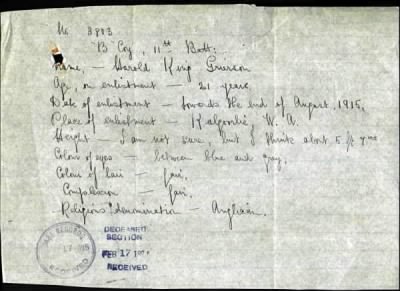 No. 3803
B Coy, 11th Batt:
Name, - Harold King Grierson
Age, on enlistment - 21 years
Date of enlistment - towards the end of August, 1915,
Place of enlistment - Kalgoorlie, W. A.
Height - I am not sure, but I think about 5 ft
Colour of eyes - between blue and grey.
Colour of hair - fair.
Complexion - fair.
Religious denomination - Anglican.
RECORDS
RECEIVED
DECEASED
SECTION
FEB 17
RECEIVED